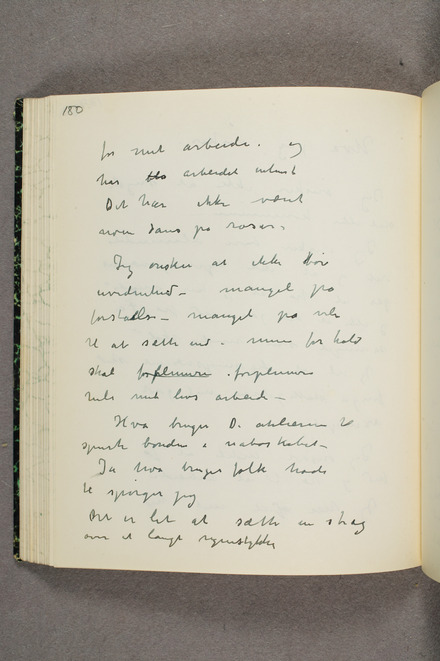 180
for mit arbeide. og
har arbeidet intenst
Det har ikke været
noen dans på roser.
Jeg ønsker at ikke
uvidenhed – mangel på
forståelse – mangel på vilje
til at sætte ind. mine forhold
skal forplumre . forplumre
hele mit livs arbeide –
Hva bruger De atelieren til
spurte bonden i naboskabet –
Ja hva bruger folk hode
til spørger jeg
Det er let at sætte en streg
over et langt regnestykke